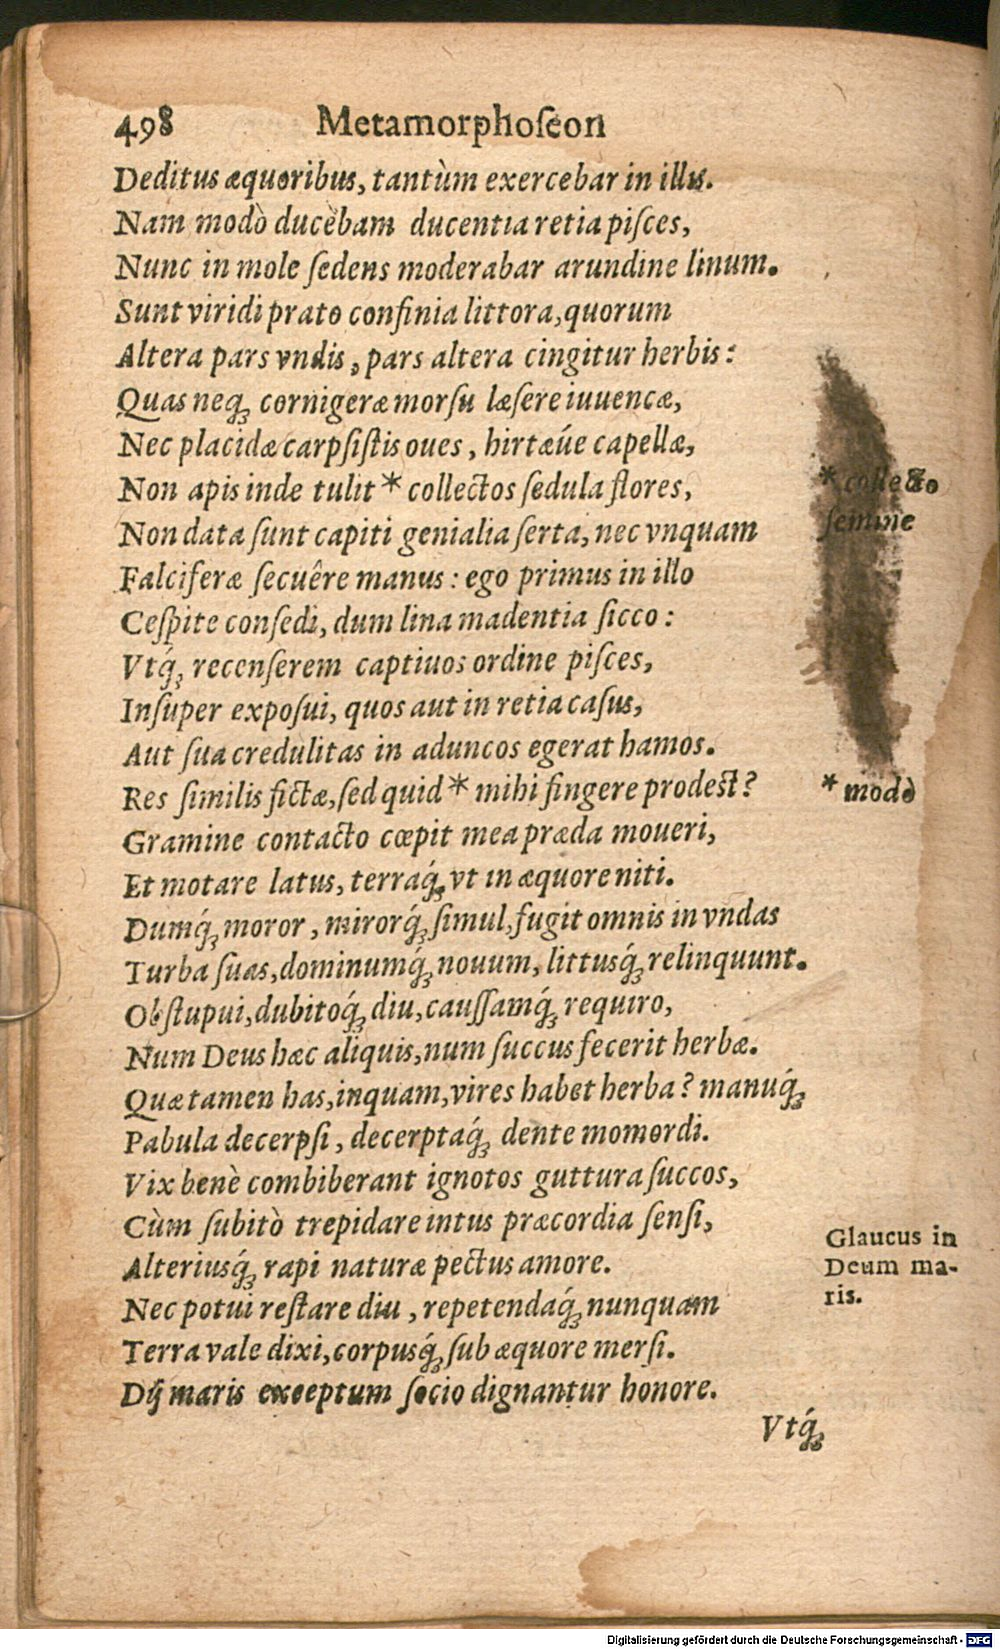 498 Metamorphoſeon
Deditus æquoribus, tantùm exercebar in illis.
Nam modò ducebam ducentia retia piſces,
Nunc in mole ſedens moderabar arundine linum.
Sunt viridi prato confinia littora, quorum
Altera pars vndis, pars altera cingitur herbis:
Quas neq́; cornigeræ morſu læſere iuuencæ,
Nec placidæ carpſiſtis oues, hirtæúe capellæ,
Non apis inde tulit * collectos ſedula flores,
* collecto
ſemine
Non data ſunt capiti genialia ſerta, nec vnquam
Falciferæ ſecuêre manus: ego primus in illo
Ceſpite conſedi, dum lina madentia ſicco:
Vtq́; recenſerem captiuos ordine piſces,
Inſuper expoſui, quos aut in retia caſus,
Aut ſua credulitas in aduncos egerat hamos.
Res ſimilis fictæ, ſed quid * mihi fingere prodeſt?
* modò
Gramine contacto cœpit mea præda moueri,
Et motare latus, terraq́; vt in æquore niti.
Dumq́; moror, mirorq́; ſimul, fugit omnis in vndas
Turba ſuas, dominumq́; nouum, littusq́; relinquunt.
Obſtupui, dubitoq́; diu, cauſſamq́; requiro,
Num Deus hæc aliquis, num ſuccus fecerit herbæ.
Quæ tamen has, inquam, vires habet herba? manuq́;
Pabula decerpſi, decerptaq́; dente momordi.
Vix benè combiberant ignotos guttura ſuccos,
Cùm ſubitò trepidare intus præcordia ſenſi,
Alteriusq́; rapi naturæ pectus amore.
Glaucus in
Deum ma-
ris.
Nec potui reſtare diu, repetendaq́; nunquam
Terra vale dixi, corpusq́; ſub æquore merſi.
Dij maris exceptum ſocio dignantur honore.
Vtq́;
Digitalisierung gefördert durch die Deutsche Forschungsgemeinschaft - DFG